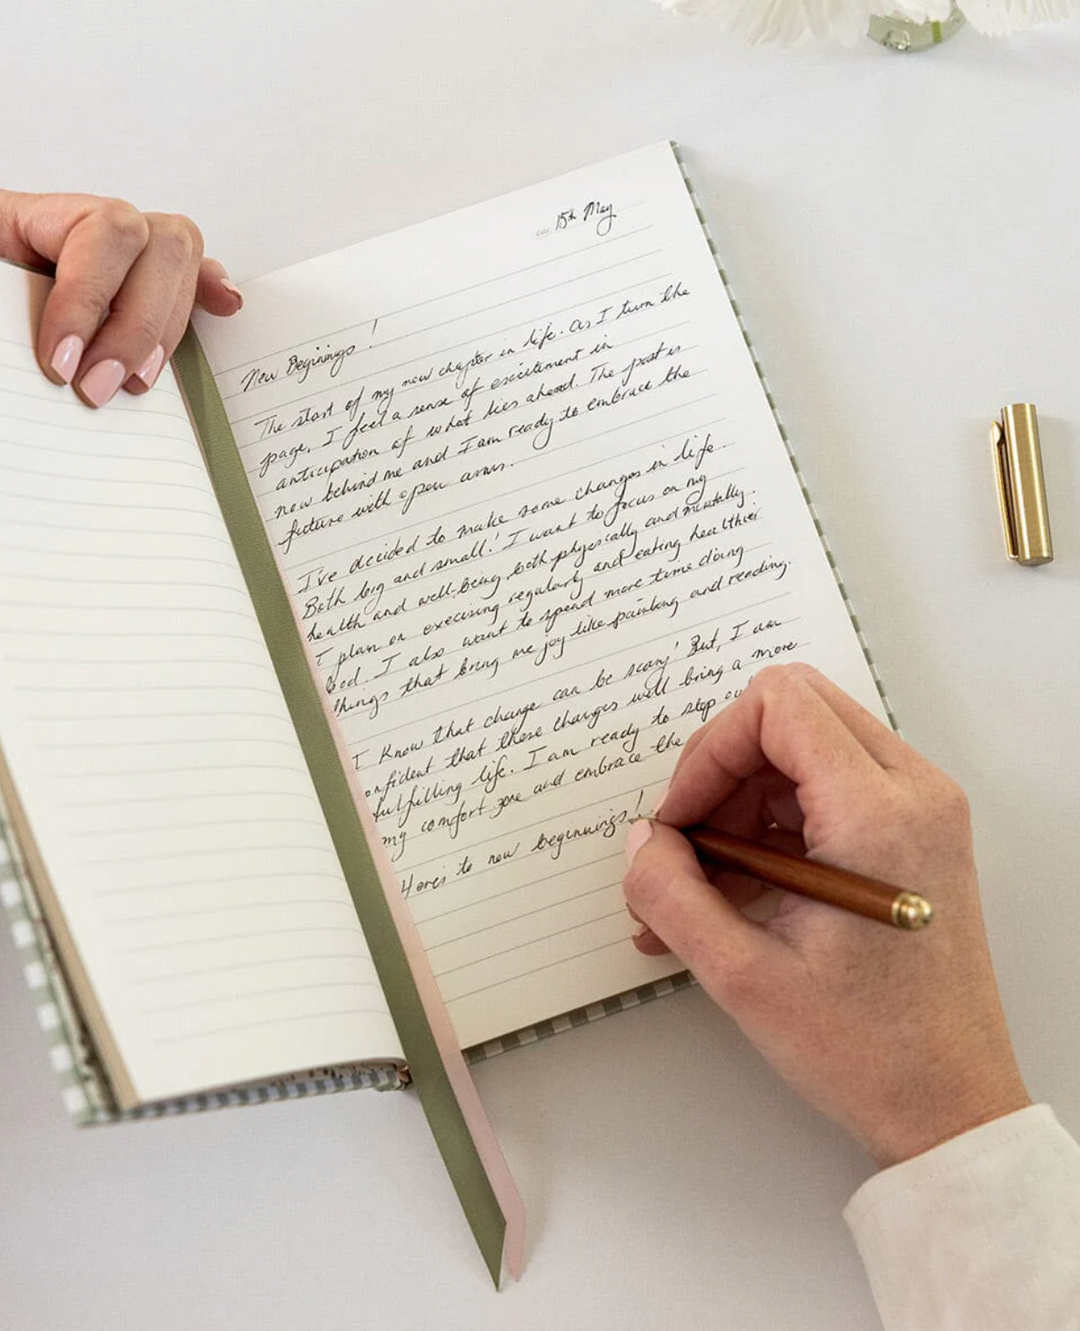 15th May
New Beginnings!
The start of my new chapter in life. As I turn the
page, I feel a sense of excitement in
anticipation of what lies ahead. The past is
now behind me and I am ready to embrace the
future with open arms.
I've decided to make some changes in life.
Both big and small! I want to focus on my
health and well-being both physically and mentally.
I plan on execising regularly and eating healthier
ood. I also want to spend more time doing
things that bring me joy like painting and reading.
I know that change can be scary! But, I am
onfident that these changes will bring a more
fulfilling life. I am ready to step ou
my comfort zone and embrace the
Here's to new beginnings!